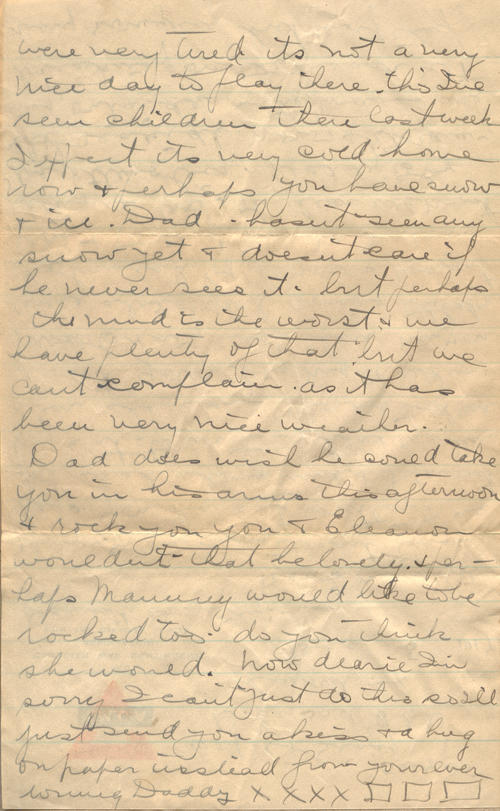 were very tired its not a very
nice day to play there. this Ive
seen children there last week
I expect its very cold home
now & perhaps you have snow
& ice. Dad - hasnt seen any
snow yet & doesnt care if
he never sees it - but perhaps
the mud is the worst & we
have plenty of that but we
cant complain. as it has
been very nice weather.
Dad does wish he coued take
you in his arms this afternoon
& rock you you & Eleanor
wouldent that be lovely. & per-
haps Mammy would like to be
rocked too - do you think
she woued. Now dearie Im
sorry I cant just do this so Ill
just send you a kiss & a hug
on paper instead from your ever
loving Daddy X X X X □ □ □